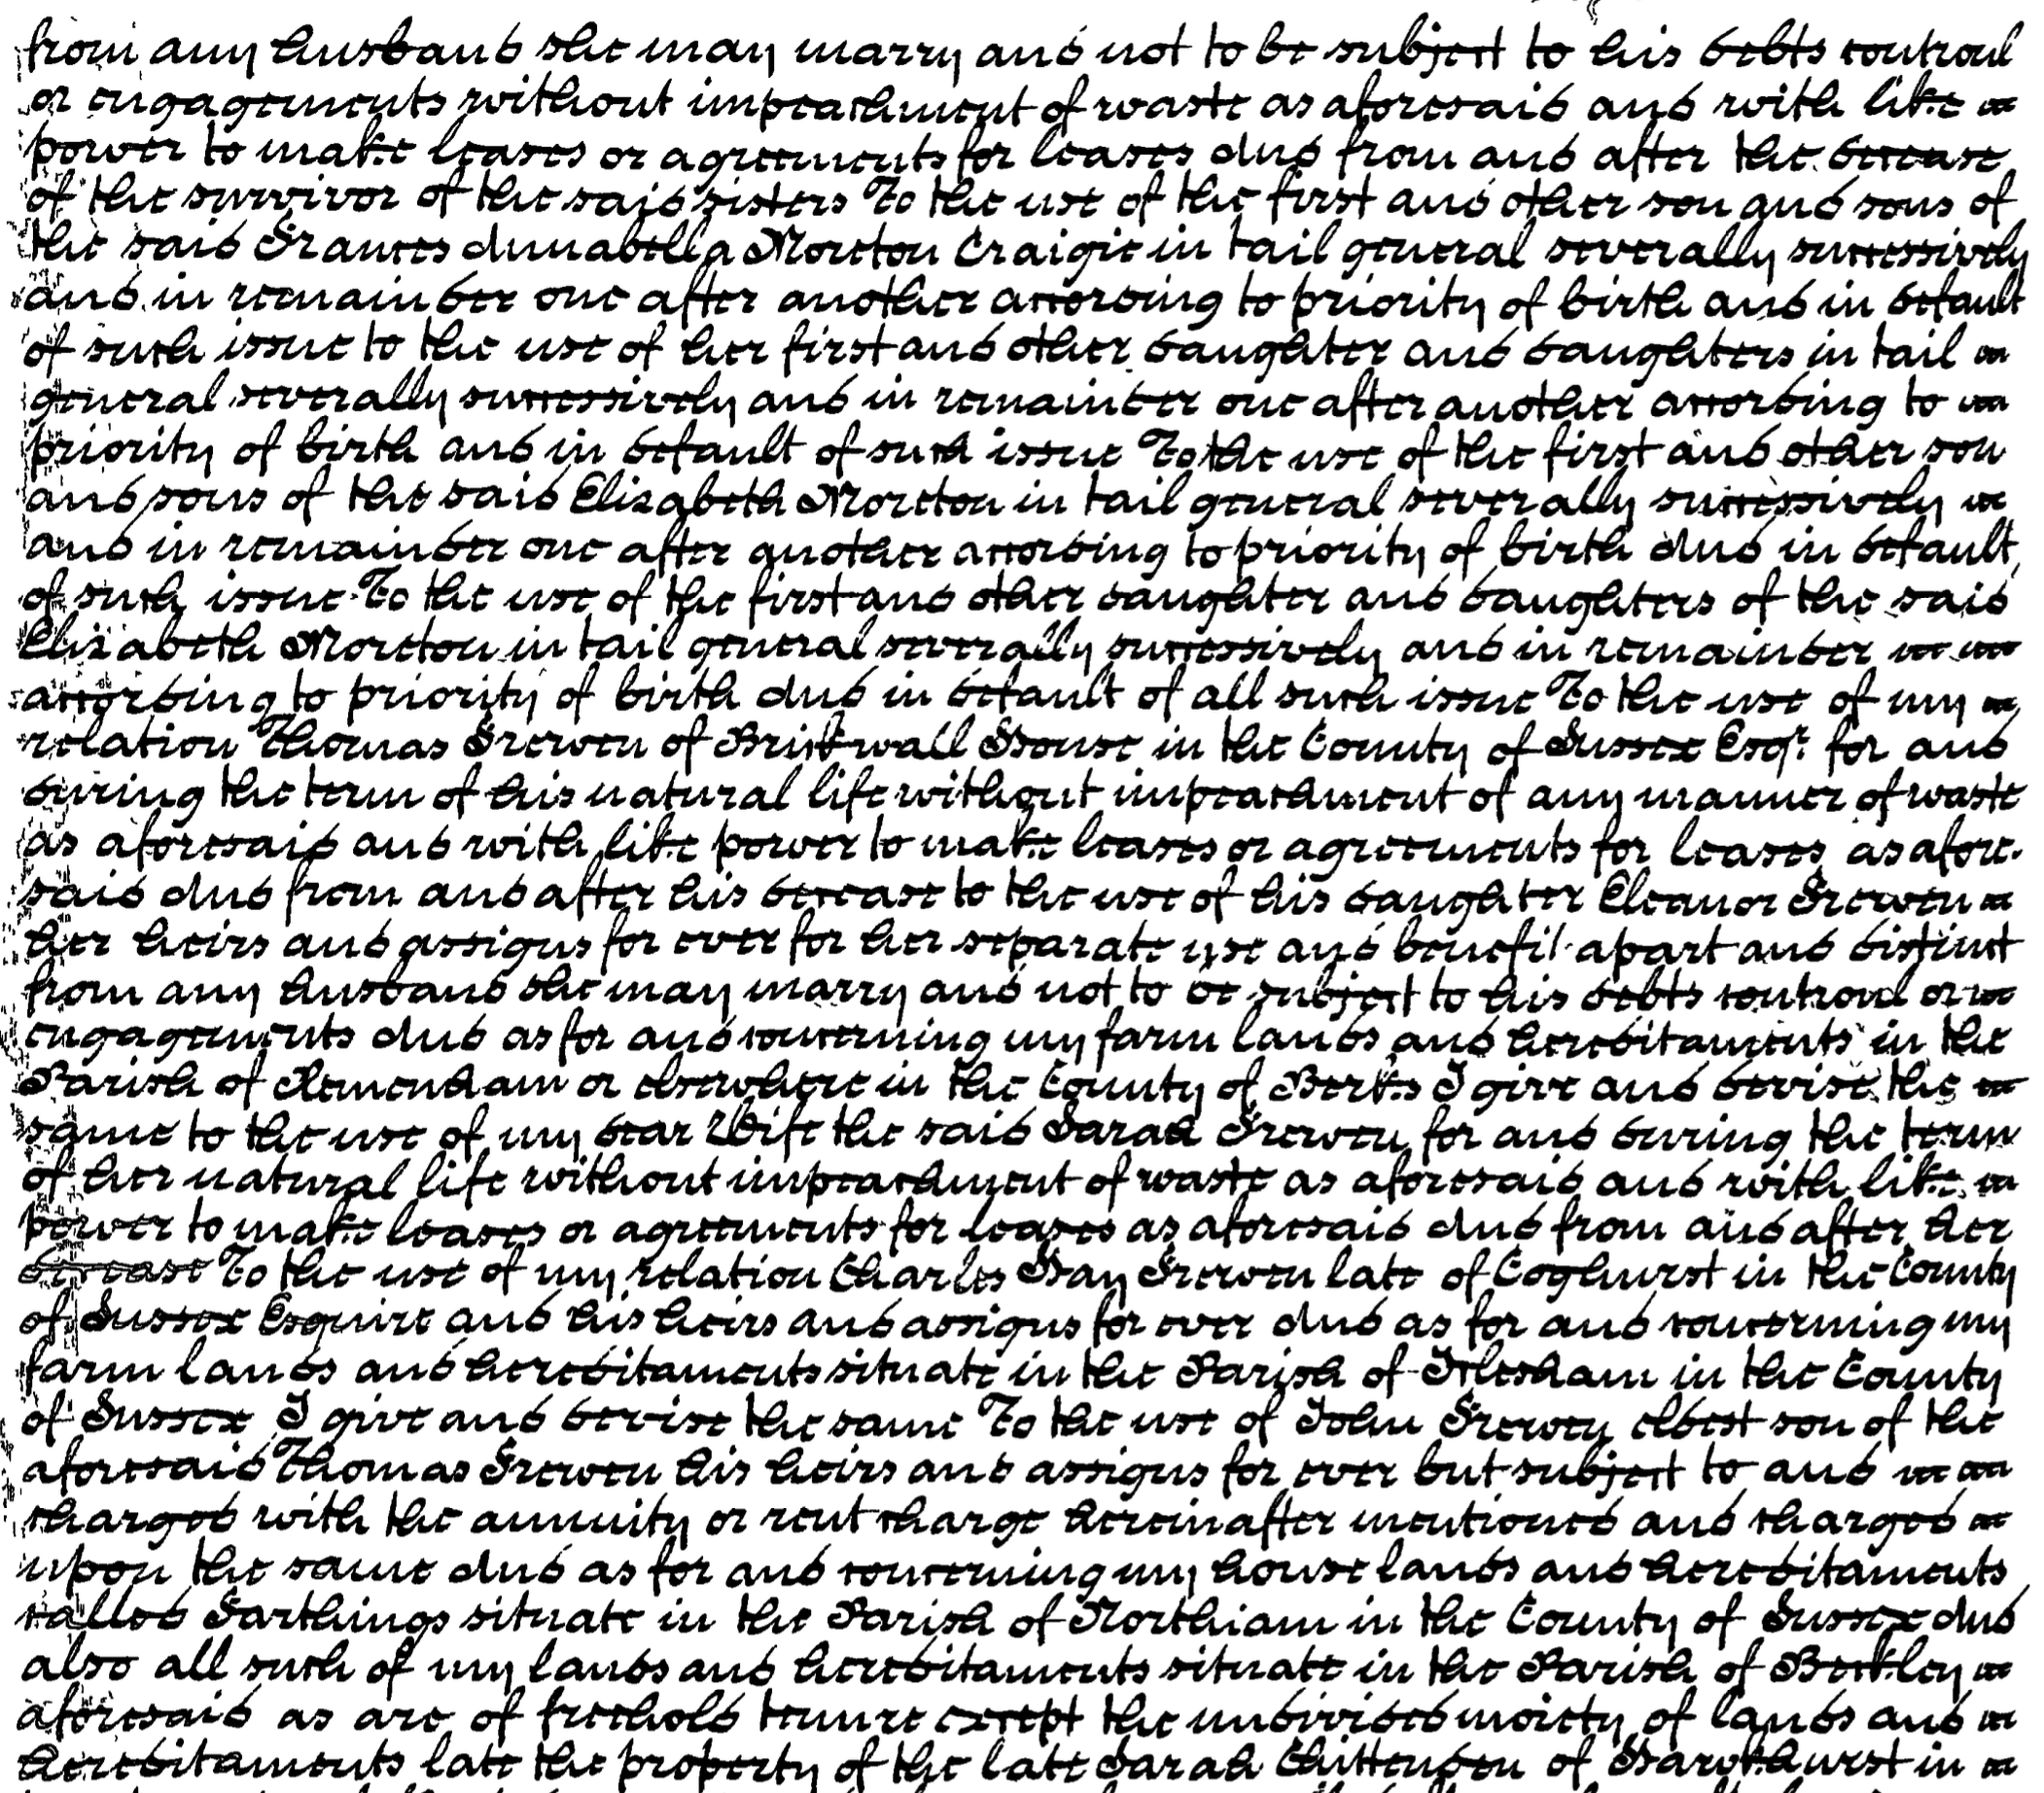 from any husband she may marry and not to be subject to his debts controul
or engagements without impeachment of waste as aforesaid and with like
power to make leases or agreements for leases And from and after the decease
of the survivor of the said sisters To the use of the first and other son and sons of
the said Frances Annabella Moreton Craigie in tail general severally successively
and in remainder one after another according to priority of birth and in default
of such issue to the use of her first and other daughter and daughters in tail
general severally successively and in remainder one after another according to
priority of birth and in default of such issue To the use of the first and other son
and sons of the said Elizabeth Moreton in tail general severally successively
and in remainder one after another according to priority of birth And in default
of such issue To the use of the first and other daughter and daughters of the said
Elizabeth Moreton in tail general severally successively and in remainder
according to priority of birth And in default of all such issue To the use of my
relation Thomas Frewen of Brickwall House in the County of Sussex Esqr. for and
during the term of his natural life without impeachment of any manner of waste
as aforesaid and with like power to make leases or agreements for leases as afore-
said And from and after his decease to the use of his daughter Eleanor Frewen
her heirs and assigns for ever for her separate use and benefit apart and distinct
from any husband she may marry and not to be subject to his debts controul or
engagements And as for and concerning my farm lands and hereditaments in the
Parish of Remenham or elsewhere in the County of Berks I give and devise the
same to the use of my dear Wife the said Sarah Frewen for and during the term
of her natural life without impeachment of waste as aforesaid and with like
power to make leases or agreements for leases as aforesaid And from and after her
decease To the use of my relation Charles Hay Frewen late of Coghurst in the County
of Sussex Esquire and his heirs and assigns for ever And as for and concerning my
farm lands and hereditaments situate in the Parish of Icklesham in the County
of Sussex I give and devise the same To the use of John Frewen eldest son of the
aforesaid Thomas Frewen his heirs and assigns for ever but subject to and
charged with the annuity or rent charge hereinafter mentioned and charged
upon the same And as for and concerning my house lands and hereditaments
called Farthings situate in the Parish of Northiam in the County of Sussex And
also all such of my lands and hereditaments situate in the Parish of Beckley
aforesaid as are of freehold tenure except the undivided moiety of lands and
hereditaments late the property of the late Sarah Chittenden of Hawkhurst in